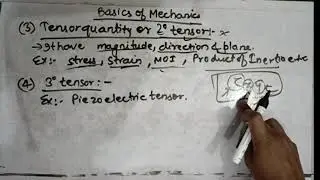 Basics of Mechanics
(3) Tensor quantity or 2° tensor :- x
→ It have magnitude, direction & plane.
Ex :- stress, strain, MOI, Product of Inertia etc
(4) 3° tensor :-
Ex :- Piezoelectric tensor.